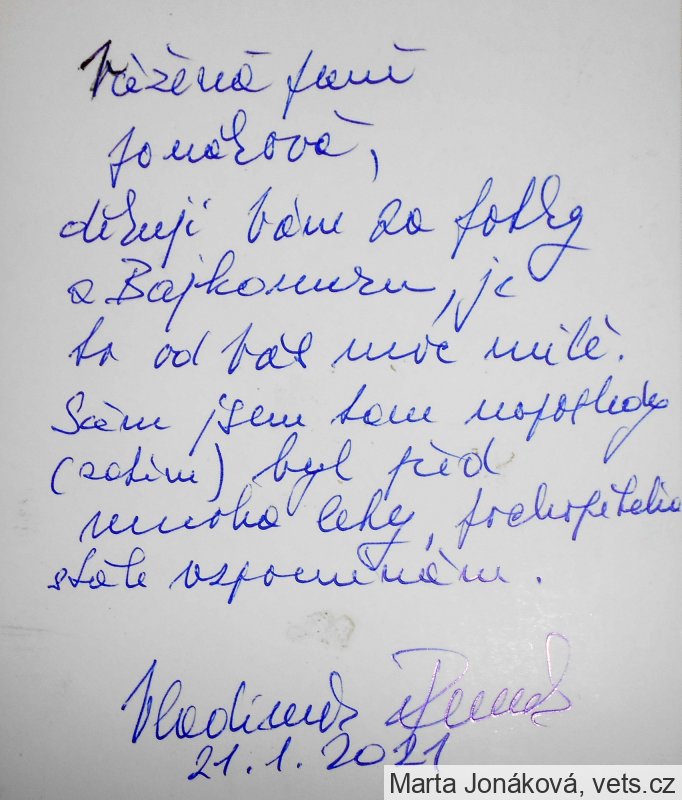 Vážená paní
Jonáková,
děkuji Vám za fotky
z Bajkonuru, je
to od Vás moc milé.
Sám jsem tam naposledy
(zatím) byl před
mnoha lety, pochopitelně
stále vzpomínám.
Vladimír Remek
21.1.2021
Marta Jonáková, vets.cz